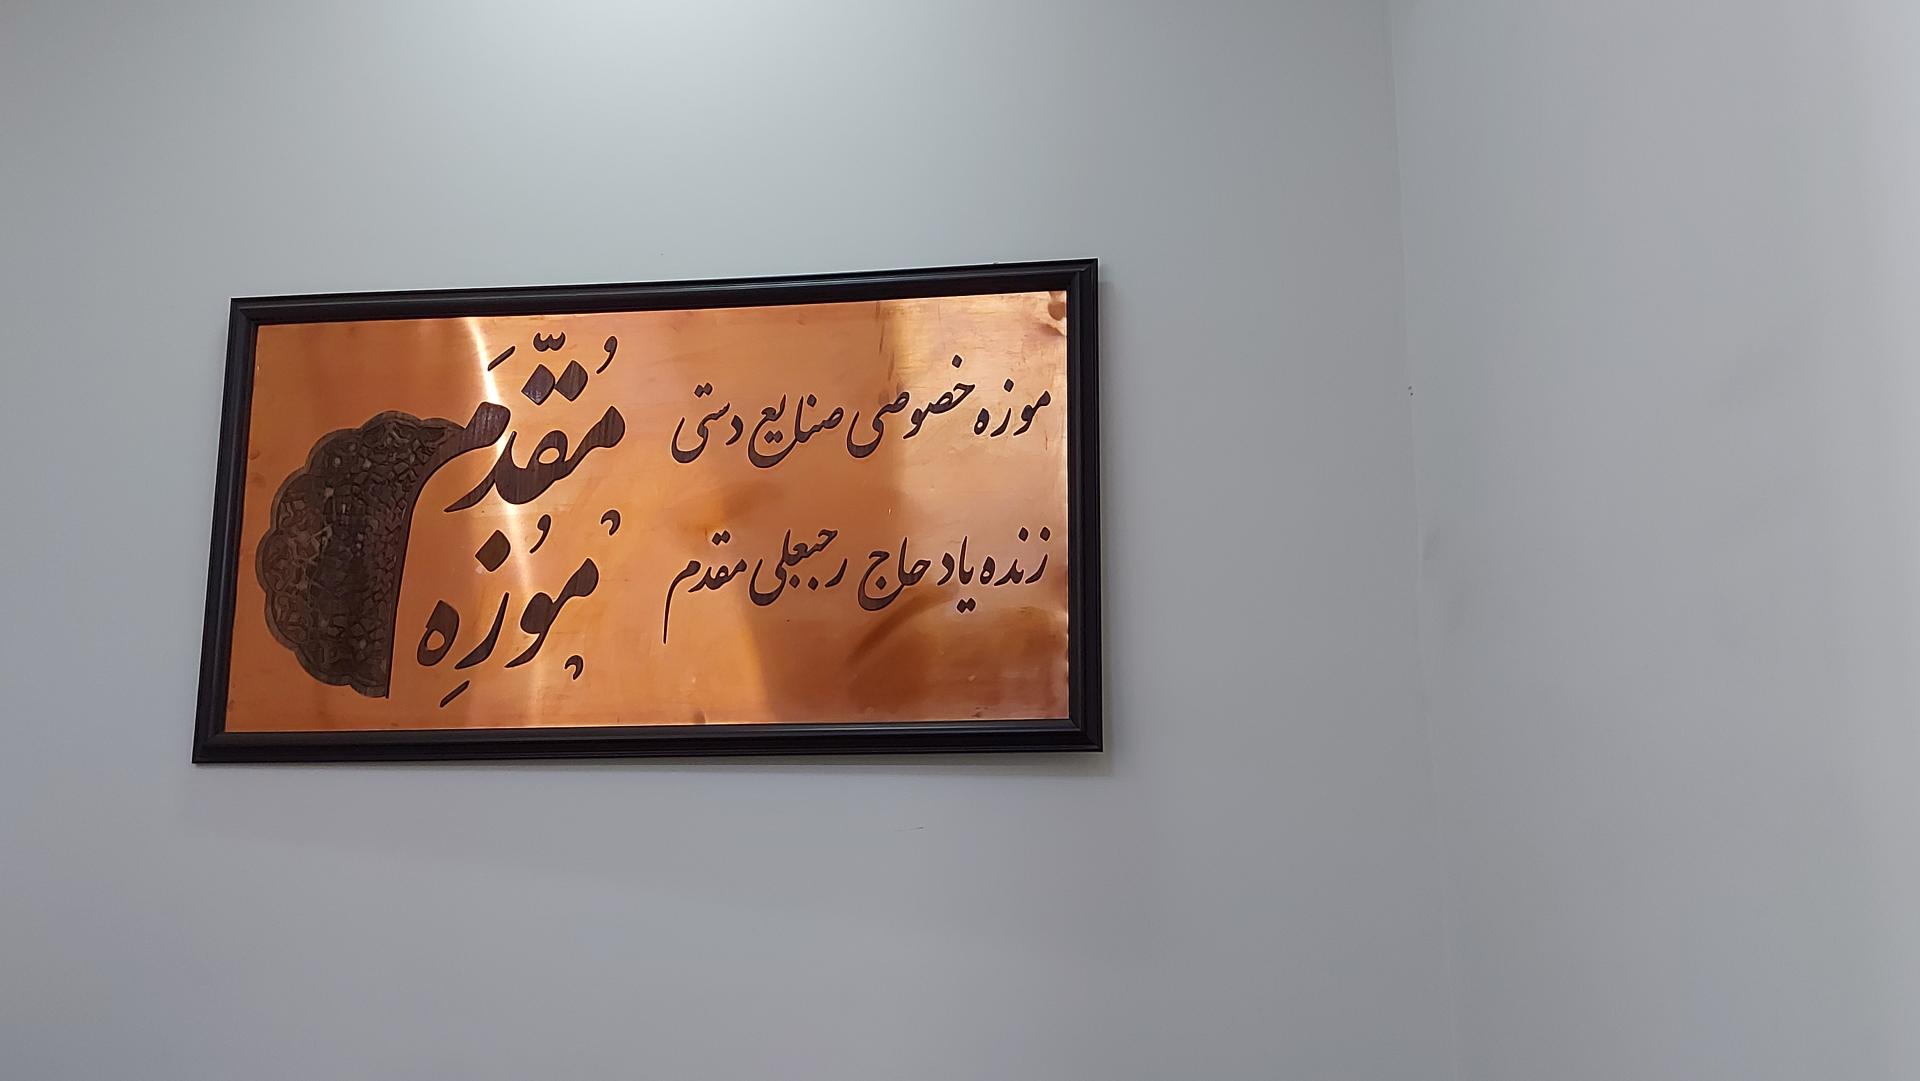 موزه خصوصی صنایع دستی
زنده یاد حاج رجبعلی مقدم
مُوُزِه
مُقدَّم